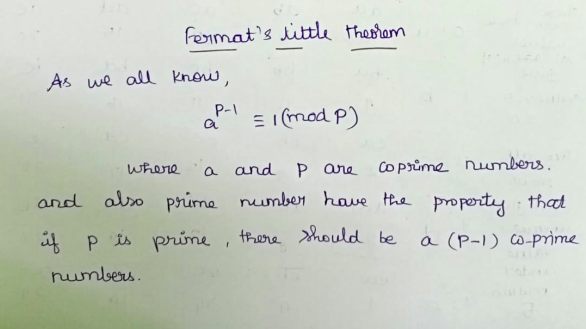 Fermat's little theorem
As we all know,
a^{P-1} ≡ 1 (mod P)
where a and p are coprime numbers.
and also prime number have the property that
if p is prime, there should be a (P-1) co-prime
numbers.